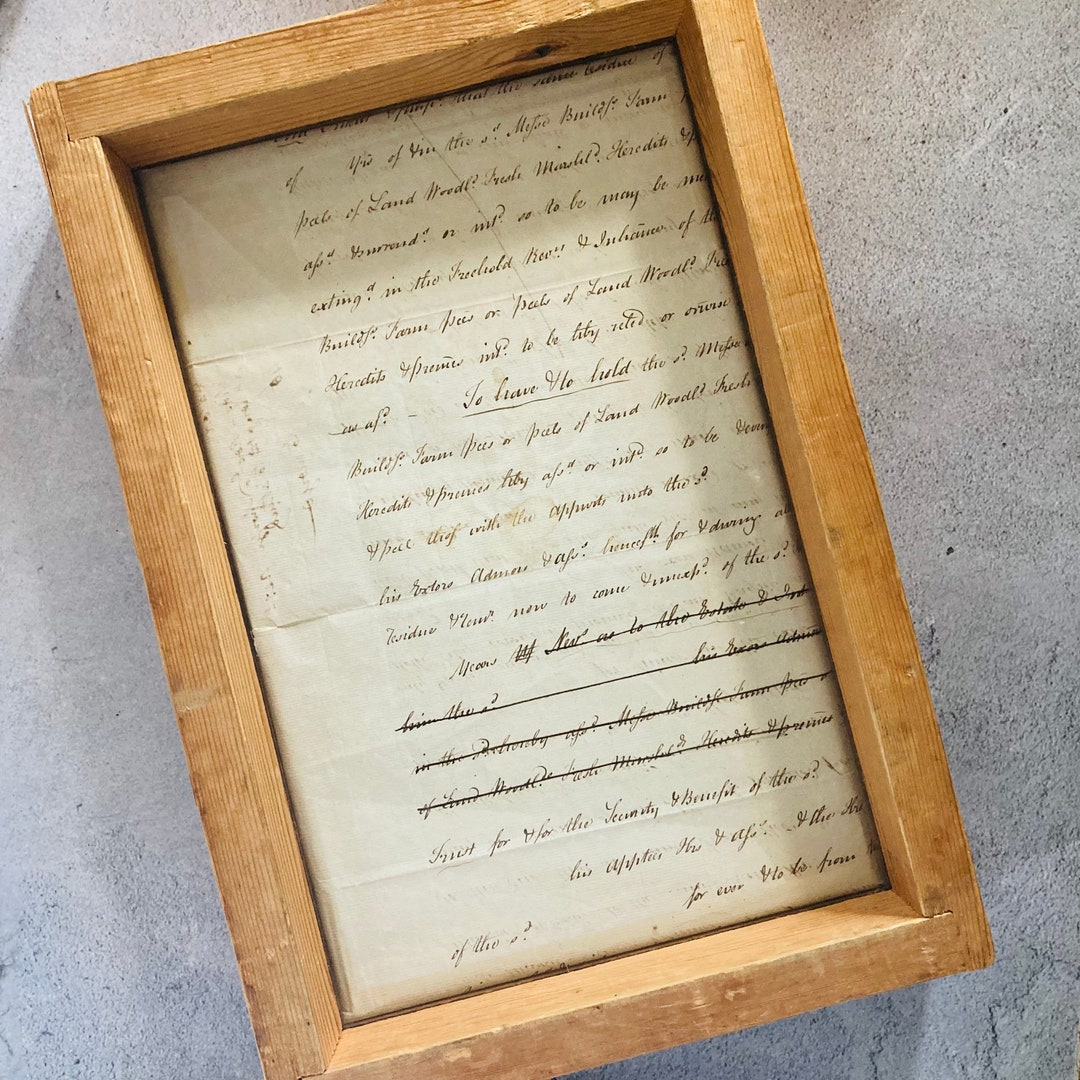 that the same Residue of
of yrs of & in the sd. Messe Buildgs. Farm
pcels of Land Woodld. Fresh Marshld. Heredits &
assd. & surrendd. or intd. so to be may be
extingd. in the Freehold Revn. & Inhance of the
Buildgs. Farm pces or pcels of Land Woodld.
Heredits & premes intd. to be thby reled. or orwise
as afd. – To have & to hold the sd. Messe
Buildgs. Farm pces or pcels of Land Woodld. Fresh
Heredits & premes thby assd. or intd. so to be & every
& pcell thof with the Appurts unto the sd.
his Exors Admors & assns. hencefth for & during all
Residue & now to come & unexpd. of the sd.
Years Nevs. as to the Estate & Int
him the sd. his Exors Admors
in the sd. hereby assd. Messe Buildgs. Farm pces
of Land Woodld. Fresh Marshld. Heredits & premes
Trust for & for the Security & Benefit of the sd.
his Apptees Hrs & assns. & the
for ever & to be from
of the sd.